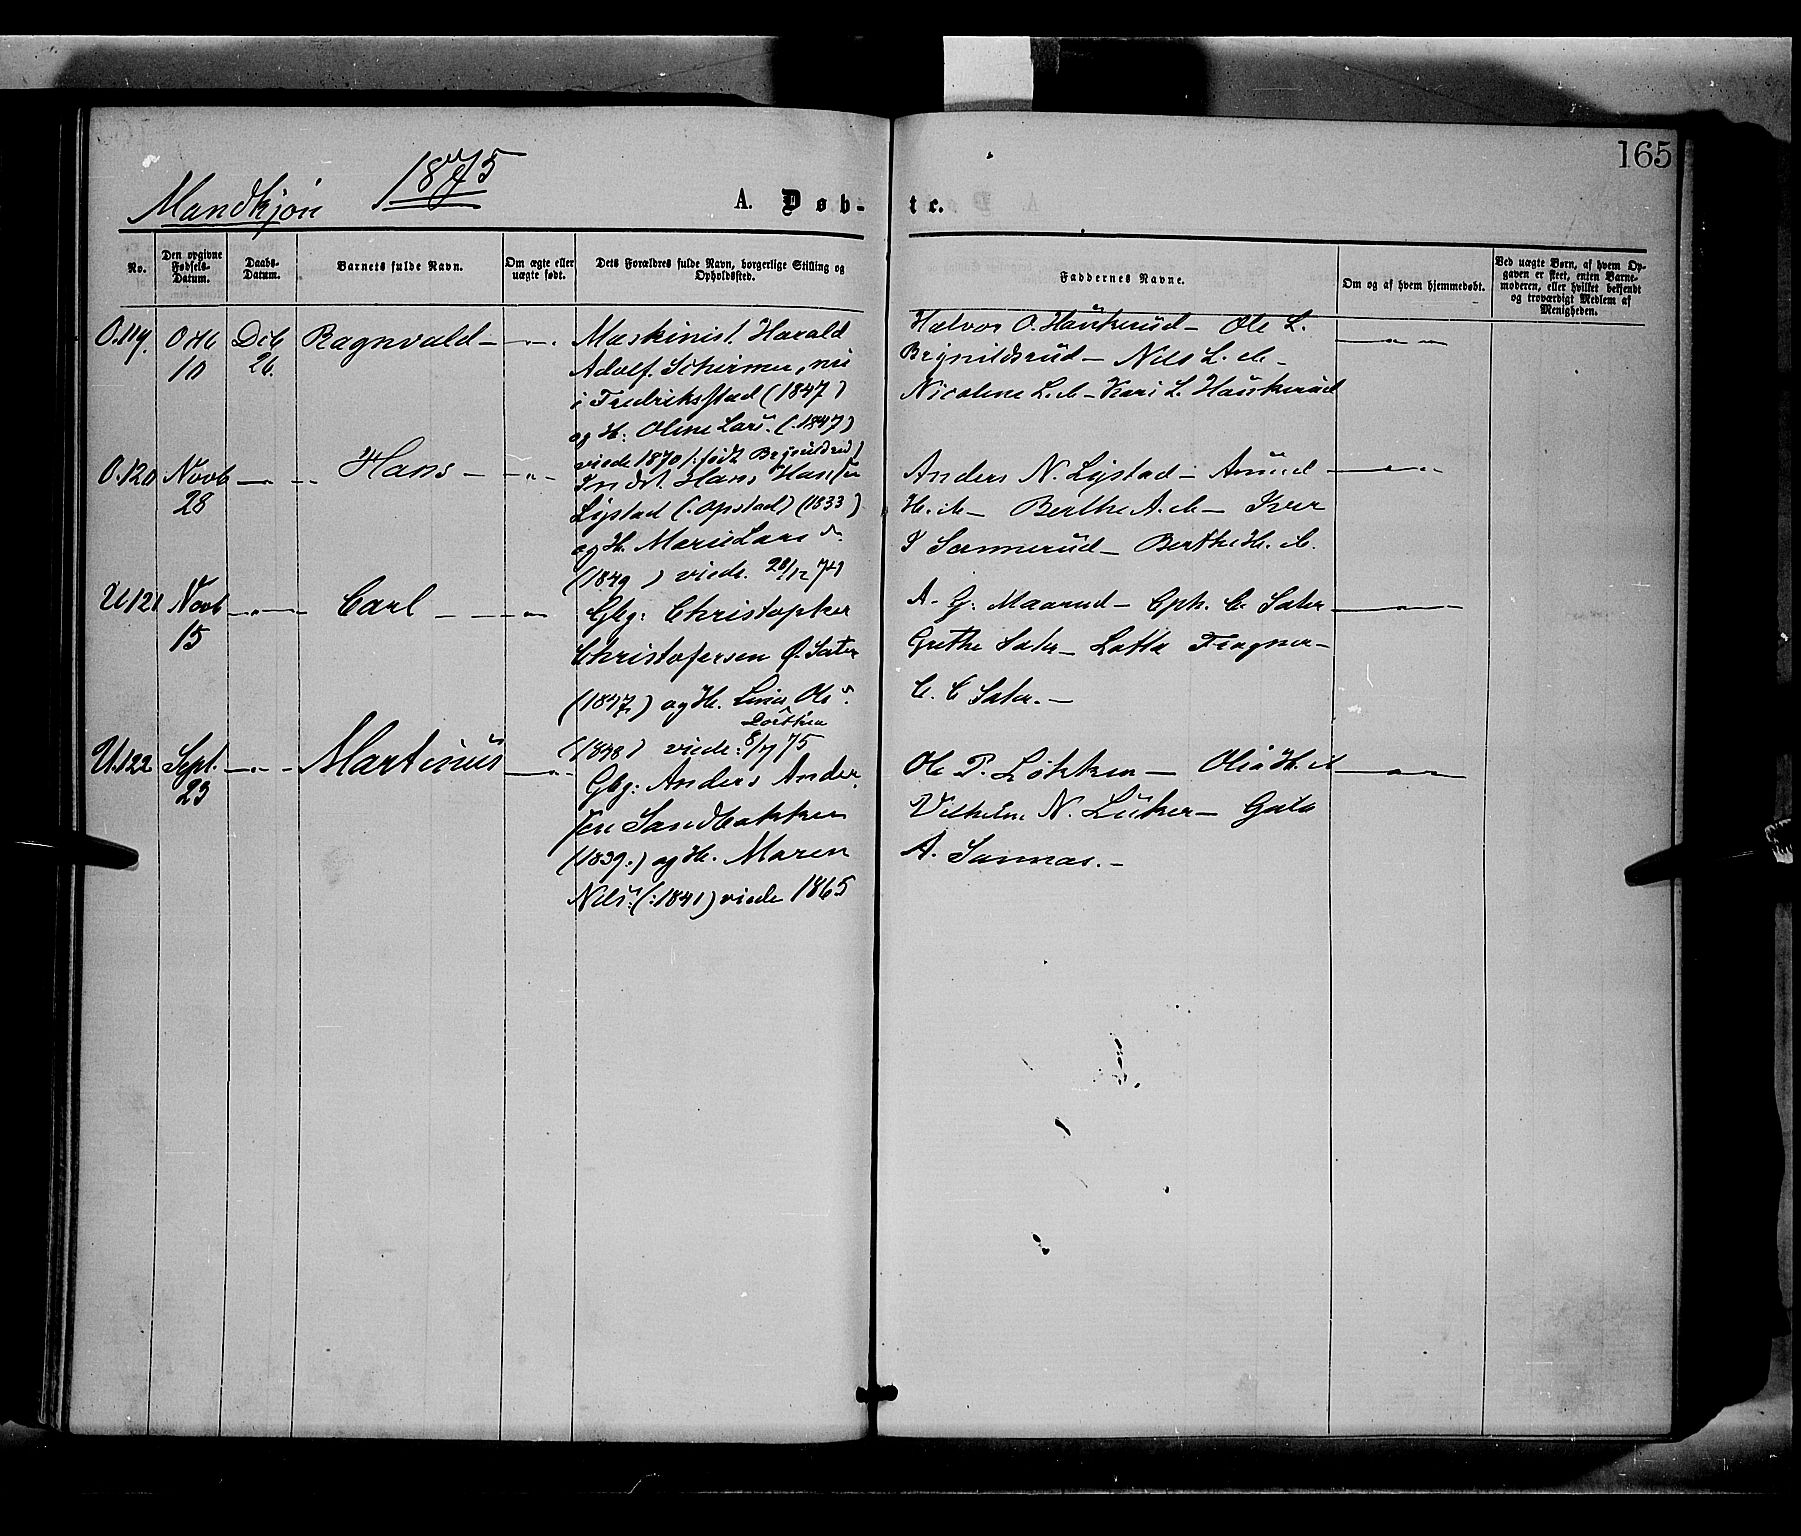 165
Mandkjøn 1875
A. Døb- te.
No.
Den opgivne Fødsels-Datum.
Daabs-Datum.
Barnets fulde Navn.
Om ægte eller uægte født.
Dets Forældres fulde Navn, borgerlige Stilling og Opholdssted.
Faddernes Navne.
Om og af hvem hjemmedøbt.
Ved uægte Børn, af hvem Opgaven er skeet, enten Barnemoderen, eller hvilket bekjendt og troværdigt Medlem af Menigheden.
O.119. Otb 10 Dcb 26. Ragnvald — — " —
Maskinist Harald
Adolf Schirmer, nu
i Fredriksstad (1847)
og H: Oline Lars. (:1847)
viede 1870 /: født Brynildsrud)
Halvor O. Haukerud — Ole L.
Brynildsrud — Nils L. ib —
Nicolene L. ib — Kari L. Haukerud
— " —
O.120 Novb 28 — " — Hans — — " —
Indst. Hans Hansen
Lystad (: Opstad) (1833)
og H. Marie Lars d.
(1849 ) viede 28/12 74
Anders N. Lystad — Amund
H. ib — Berthe A. ib — Iver
I Sønnerud — Berthe H. ib.
— " —
U.121 Novb 15 — " — Carl — — " —
Gbg: Christopher
Christofersen Ø. Sæter
(1847) og H. Lina Ols.
Dorthea
(1848) viede: 8/7 75
A. G. Maarud — Cph. C. Sæter —
Grethe Sæter — Lotta Fragner —
C. C Sæter. —
— " —
U.122 Sept. 23 — " — Martinus — " —
Gbg: Anders Ander
sen Sandbakken
(1839.) og H. Maren
Nils. (:1841) viede 1865
Ole P. Løkken — Olia H. ib
Vilhelm N. — Gula
A. Sannæs. —
— " —